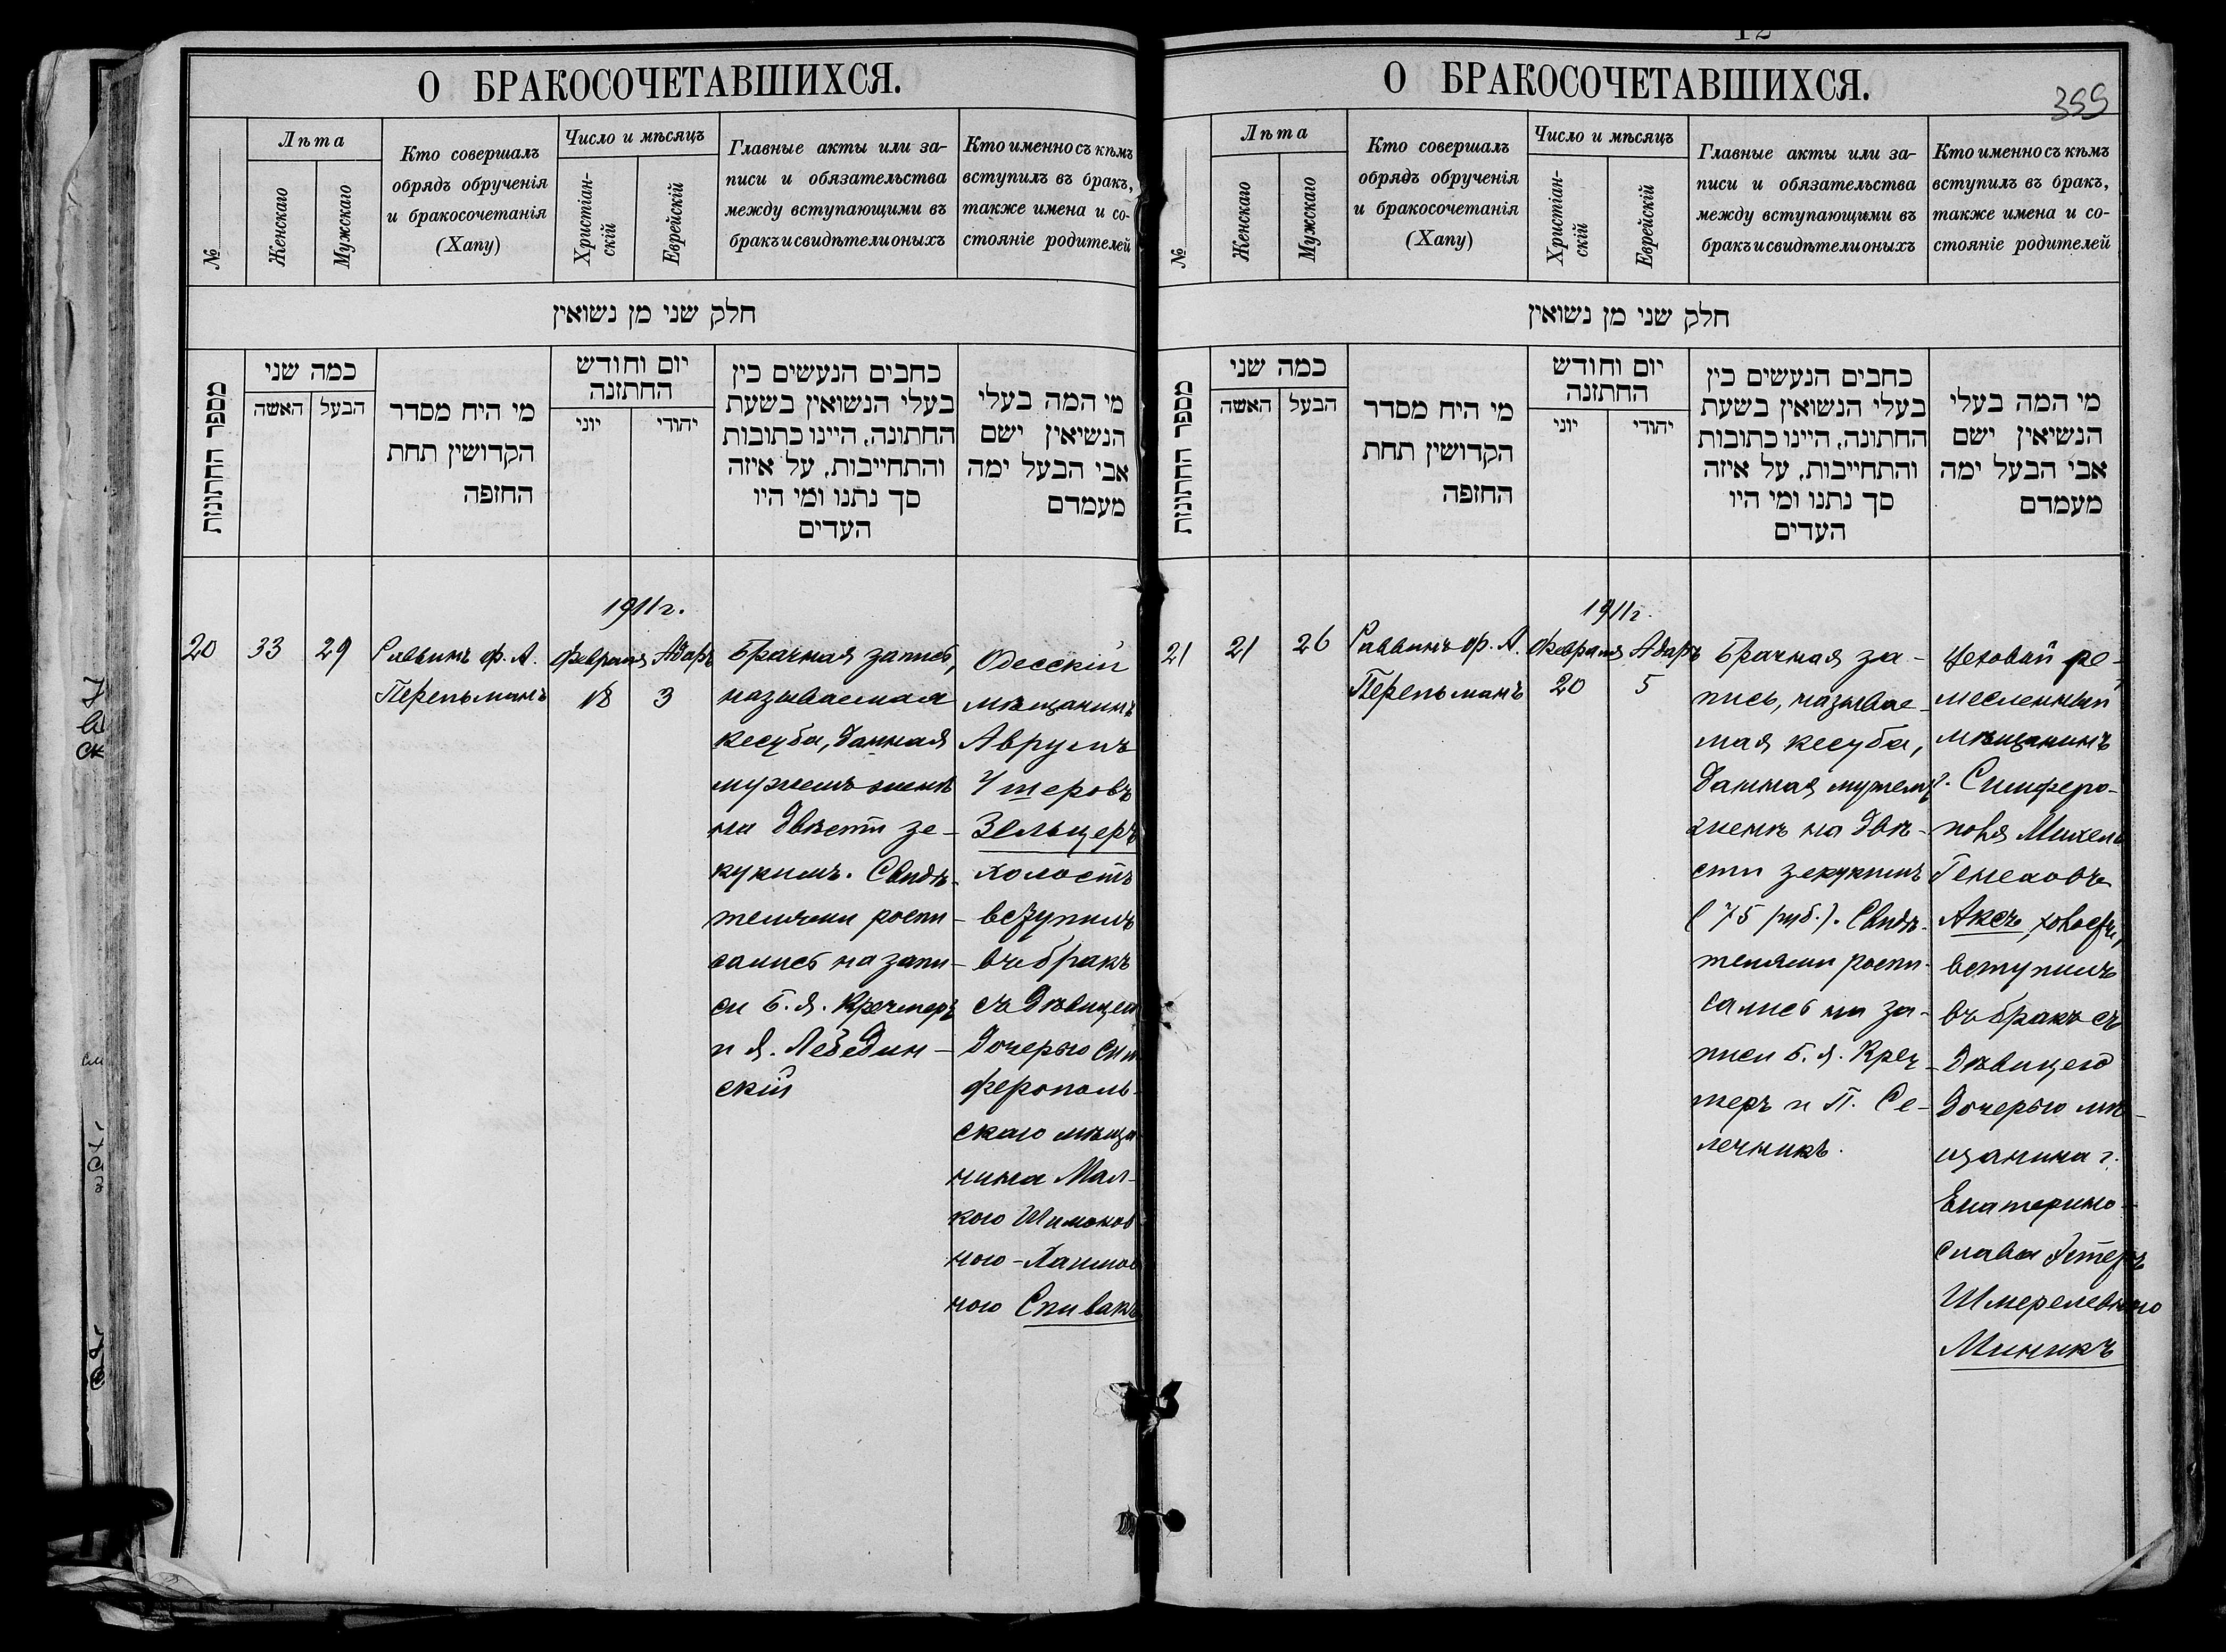 О БРАКОСОЧЕТАВШИХСЯ.
№
Лѣта
Женскаго
Мужскаго
Кто совершалъ
обрядъ обрученія
и бракосочетанія
(Хапу)
Число и мѣсяцъ
Христіан-
скій
Еврейскій
Главные акты или за-
писи и обязательства
между вступающими въ
бракъ и свидѣтели оныхъ
Кто именно съ кѣмъ
вступилъ въ бракъ,
также имена и со-
стояніе родителей
חלק שני מן נשואין
מספר החתונות
כמה שני
האשה
הבעל
מי היח מסדר
הקדושין תחת
החזפה
יום וחודש
החתזנה
יוני
יהודי
כחבים הנעשים כין
בעלי הנשואין בשעת
החתונה, היינו כתובות
והתחייבות, על איזה
סך נתנו ומי היו
העדים
מי המה בעלי
הנשיאין ישם
אבי הבעל ימה
מעמדם
20
33
29
Раввинъ Ф. А.
Перельманъ
1911 г.
Февраля
18
Адаръ
3
Брачная запись,
называемая
кесуба, данная
мужемъ женѣ
на двѣсти зе-
кукимъ. Свидѣ-
телями роспи-
сались на запи-
си Б. Я. Кречмеръ
и Я. Лебедин-
скій
Одесскій
мѣщанинъ
Аврумъ
Ушеровъ
Зельцеръ
холостъ
вступилъ
въ бракъ
съ дѣвицею
дочерью сим
ферополь-
скаго мѣща-
нина Мал-
кою Шимонов
ною-Хаимов
ною Спивакъ
О БРАКОСОЧЕТАВШИХСЯ.
12
355
№
Лѣта
Женскаго
Мужскаго
Кто совершалъ
обрядъ обрученія
и бракосочетанія
(Хапу)
Число и мѣсяцъ
Христіан-
скій
Еврейскій
Главные акты или за-
писи и обязательства
между вступающими въ
бракъ и свидѣтели оныхъ
Кто именно съ кѣмъ
вступилъ въ бракъ,
также имена и со-
стояніе родителей
חלק שני מן נשואין
מספר החתונות
כמה שני
האשה
הבעל
מי היח מסדר
הקדושין תחת
החזפה
יום וחודש
החתזנה
יוני
יהודי
כחבים הנעשים כין
בעלי הנשואין בשעת
החתונה, היינו כתובות
והתחייבות, על איזה
סך נתנו ומי היו
העדים
מי המה בעלי
הנשיאין ישם
אבי הבעל ימה
מעמדם
21
21
26
Раввинъ Ф. А.
Перельманъ
1911 г.
Февраля
20
Адаръ
5
Брачная за-
пись, называе-
мая кесуба,
данная мужемъ
женѣ на двѣ-
сти зекукимъ
(75 руб.). Свидѣ-
телями роспи-
сались на за-
писи Б. Я. Креч-
меръ и П. Се-
лечникъ.
Цеховый ре-
месленный
мѣщанинъ
г. Симферо-
поля Михель
Генеховъ
Аксъ, холостъ,
вступилъ
въ бракъ съ
дѣвицею
дочерью мѣ-
щанина г.
Екатерино-
слава Эстеръ
Шмерелевною
Миникъ